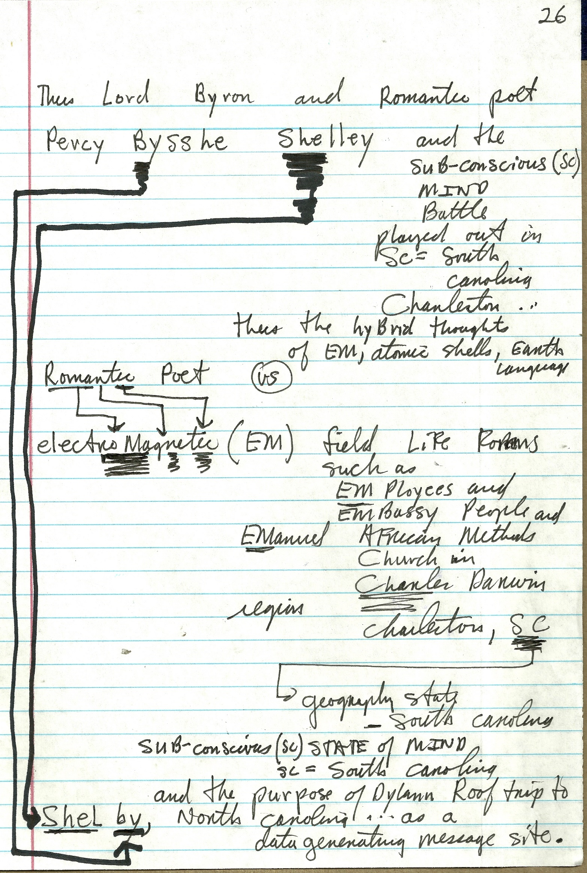 26
Thus Lord Byron and Romantic poet
Percy Bysshe Shelley and the
SUB-conscious (SC)
MIND
Battle
played out in
SC = South
carolina
Charleston ...
thus the hyBrid thoughts
of EM, atomic shells, Earth
Language
Romantic Poet (VS)
electroMagnetic (EM) field Life Forms
such as
EMPloyees and
EMBassy People and
EManuel AFrican Methods
Church in
Charles Darwin
region
Charleston, SC
geography state
- South carolina
SUB-conscious (SC) STATE of MIND
SC = South carolina
and the purpose of Dylann Roof trip to
Shel by, North carolina ... as a
data generating message site.